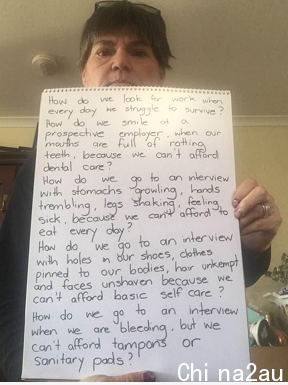 How do we look for work when
every day we struggle to survive?
How do we smile at a
prospective employer, when our
mouths are full of rotting
teeth, because we can't afford
dental care?
How do we go to an interview
with stomachs growling, hands
trembling, legs shaking, feeling
sick, because we can't afford to
eat every day?
How do we go to an interview
with holes in our shoes, clothes
pinned to our bodies, hair unkempt
and faces unshaven because we
can't afford basic self care?
How do we go to an interview
when we are bleeding, but we
can't afford tampons or
sanitary pads?
Chi na2au